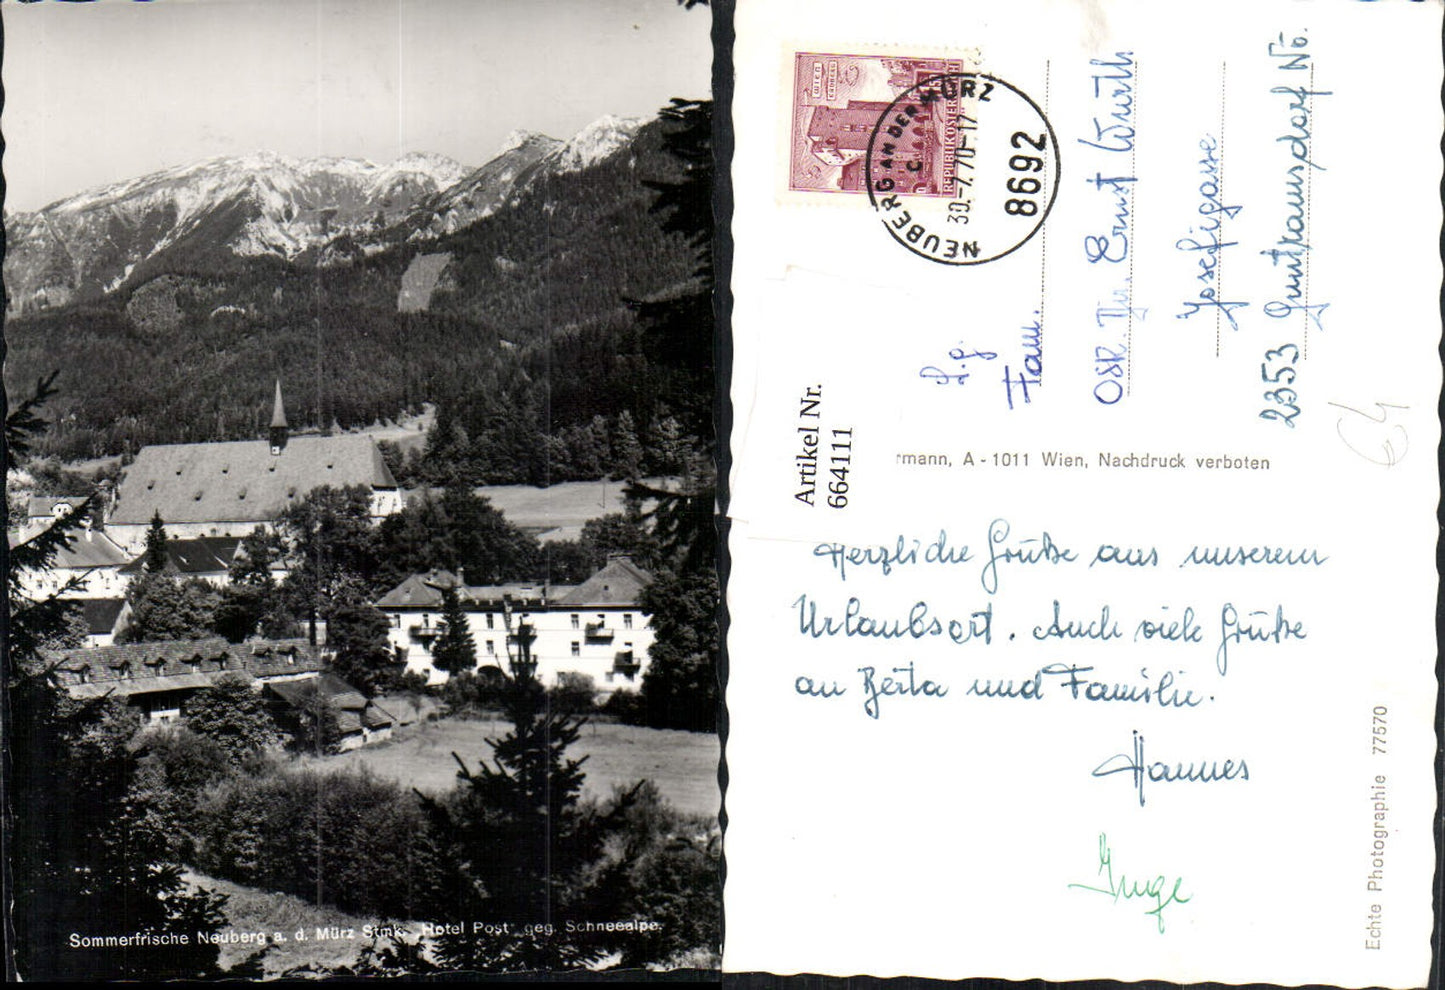 Sommerfrische Neuberg a. d. Mürz Stmk. „Hotel Post" geg. Schneealpe.
WIEN
ERDBERG
REPUBLIK ÖSTERREICH
NEUBERG AN DER MÜRZ
C
30.-7.70-17
8692
Fam.
OSR. Ernst Wurth
Josefigasse
2353 Guntramsdorf NÖ.
64
Artikel Nr.
664111
rmann, A - 1011 Wien, Nachdruck verboten
Herzliche Grüße aus unserem
Urlaubsort. Auch viele Grüße
an Berta und Familie.
Hannes
Inge
Echte Photographie 77570